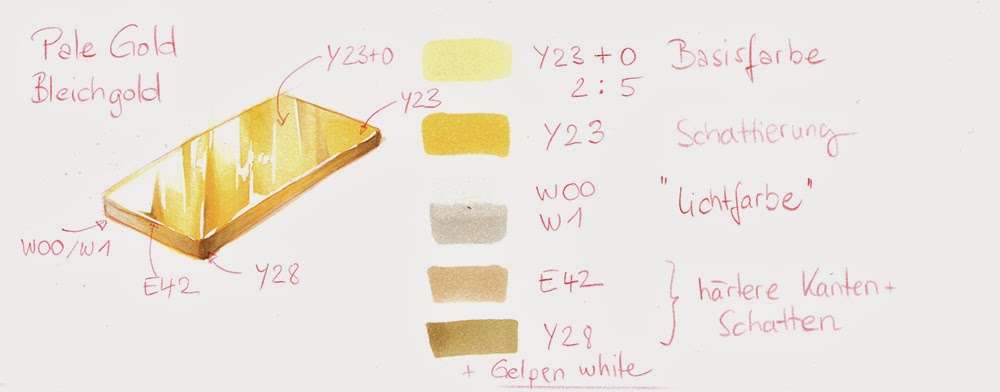 Pale Gold
Bleichgold
Y23+0
Y23
W00/W1
E42
Y28
Y23 + 0 Basisfarbe
2 : 5
Y23 Schattierung
W00
W1
"Lichtfarbe"
E42
Y28
härtere Kanten +
Schatten
+ Gelpen white